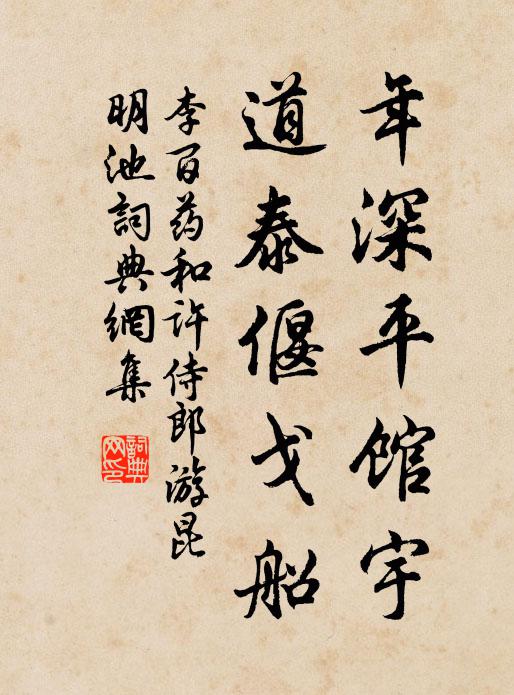 年深平館宇
道泰偃戈船
李百药和许侍郎游昆
明池詞典網集
詞典
网印